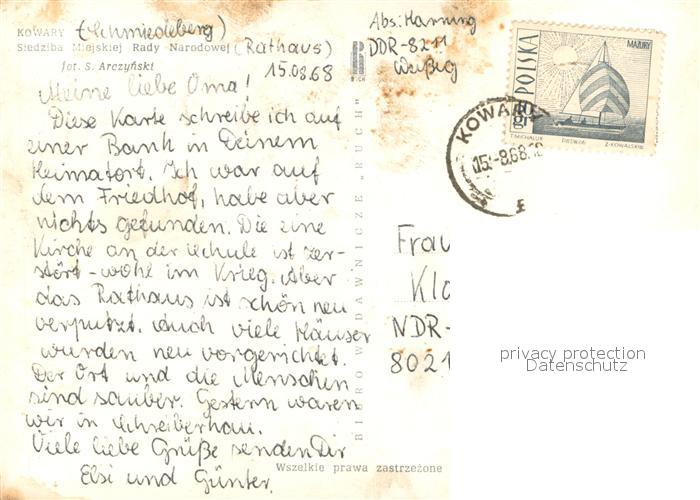 KOWARY (Schmiedeberg)
Siedziba Miejskiej Rady Narodowej (Rathaus)
fot. S. Arczyński
15.08.68
Meine liebe Oma!
Diese Karte schreibe ich auf
einer Bank in Deinem
Heimatort. Ich war auf
dem Friedhof, habe aber
nichts gefunden. Die eine
Kirche an der Schule ist zer-
stört - wohl im Krieg. Aber
das Rathaus ist schön neu
verputzt. Auch viele Häuser
wurden neu vorgerichtet.
Der Ort und die Menschen
sind sauber. Gestern waren
wir in Schreiberhau.
Viele liebe Grüße senden Dir
Elsi und Günter.
BIURO WYDAWNICZE „RUCH"
RUCH
Wszelkie prawa zastrzeżone
Abs: Harning
DDR-8211
Weißig
POLSKA
MAZURY
10 gr
T.MICHALUK
PWPW.66
Z.KOWALSKI
KOWARY
15.-8.68.18
E
Frau
Klo
NDR-
8021
privacy protection
Datenschutz